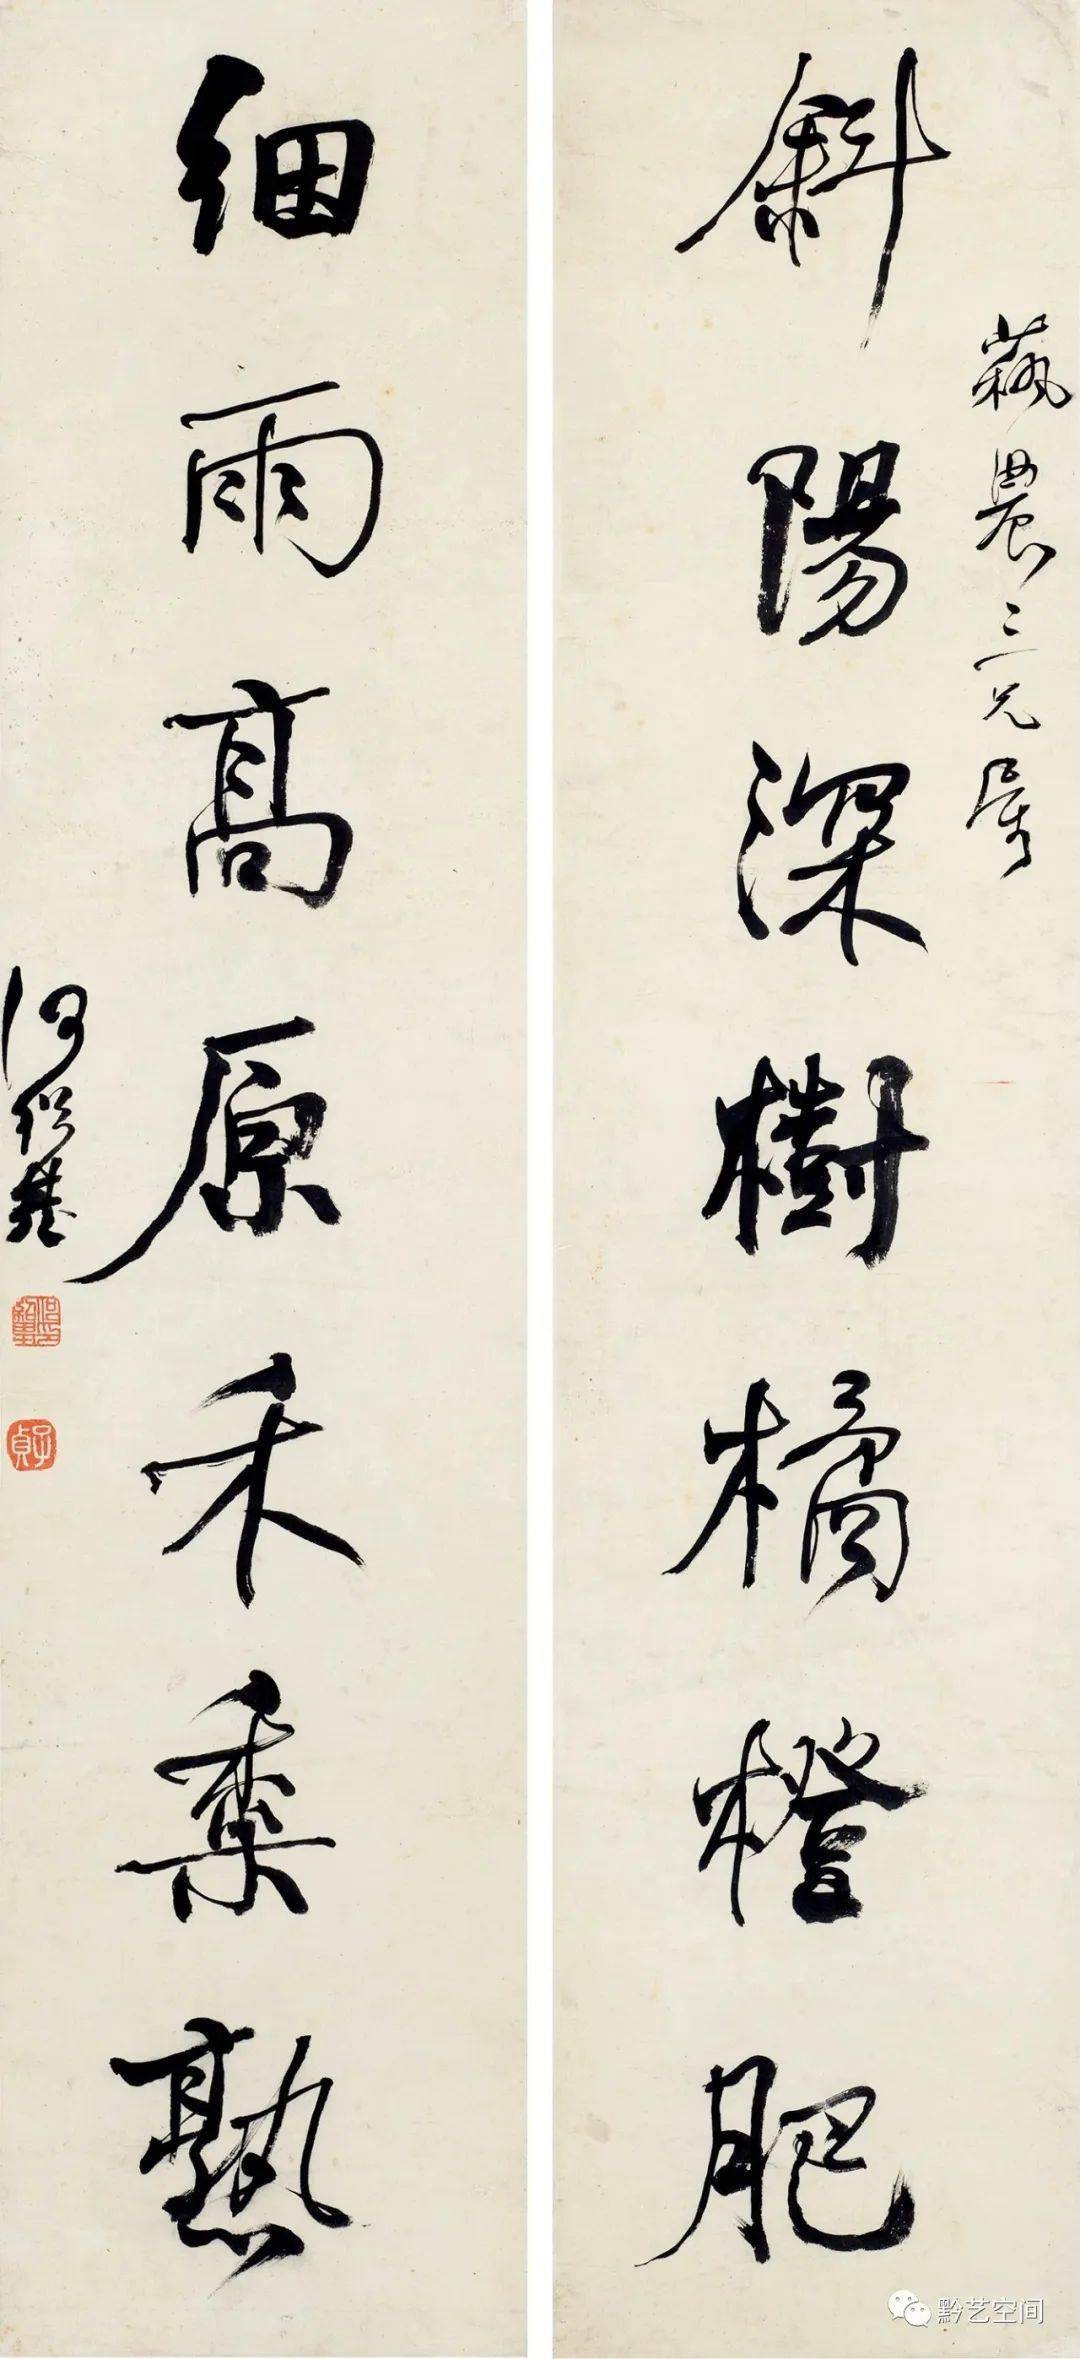 斜陽深樹橘橙肥
農三兄屬
細雨高原禾黍熟
何紹基
子貞
黔艺空间